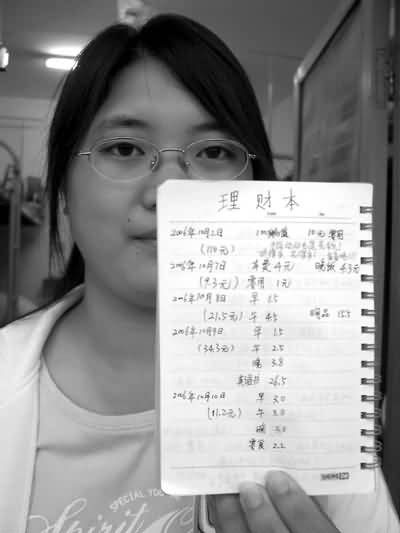 理财本
2006年10月2日 10元 零用
(110元)
2006年10月7日 车费 4元 晚饭 4.3元
(9.3元) 零用 1元
2006年10月8日 早 1.5
(21.5元) 午 4.5 用品 15.5
2006年10月9日 早 1.5
(34.3元) 午 2.5
晚 3.8
英语书 26.5
2006年10月10日 早 3.0
(11.2元) 午 3.0
晚 3.0
零食 2.2
SPECIAL YOU
Spirit